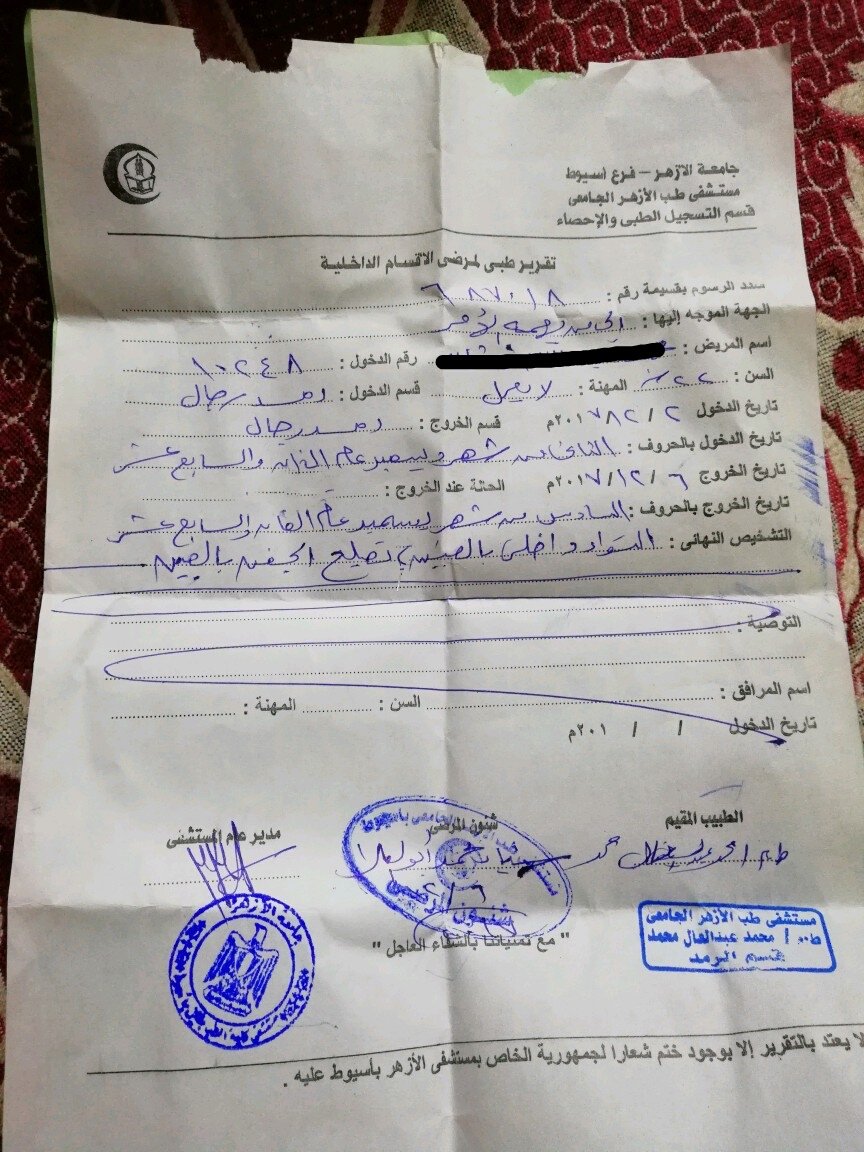 جامعة الازهر – فرع أسيوط
مستشفى طب الأزهر الجامعى
قسم التسجيل الطبى والإحصاء
تقرير طبى لمرضى الاقسام الداخلية
سدد الرسوم بقسيمة رقم : ٦٨٧٠١٨
الجهة الموجه إليها : إلى من يهمه الأمر
اسم المريض : رقم الدخول : ١٠٢٤٨
السن : ٢٢ سنة المهنة : لا يعمل قسم الدخول : رمد رجال
تاريخ الدخول ٢ / ١٢ / ٢٠١٧م قسم الخروج : رمد رجال
تاريخ الدخول بالحروف : الثانى من شهر ديسمبر عام ألفان والسابع عشر
تاريخ الخروج ٦ / ١٢ / ٢٠١٧م الحالة عند الخروج :
تاريخ الخروج بالحروف : السادس من شهر ديسمبر عام ألفان والسابع عشر
التشخيص النهائى : داخلى بالعينين تصليح الجفن بالعينين
التوصية :
اسم المرافق : السن : المهنة :
تاريخ الدخول / / ٢٠١م
الطبيب المقيم شئون المرضى مدير عام المستشفى
مستشفى طب الأزهر الجامعى
ط٠٠ / محمد عبدالعال محمد
قسم الرمد
شئون المرضى
جامعة الأزهر
" مع تمنياتنا بالشفاء العاجل "
لا يعتد بالتقرير إلا بوجود ختم شعارا لجمهورية الخاص بمستشفى الأزهر بأسيوط عليه .